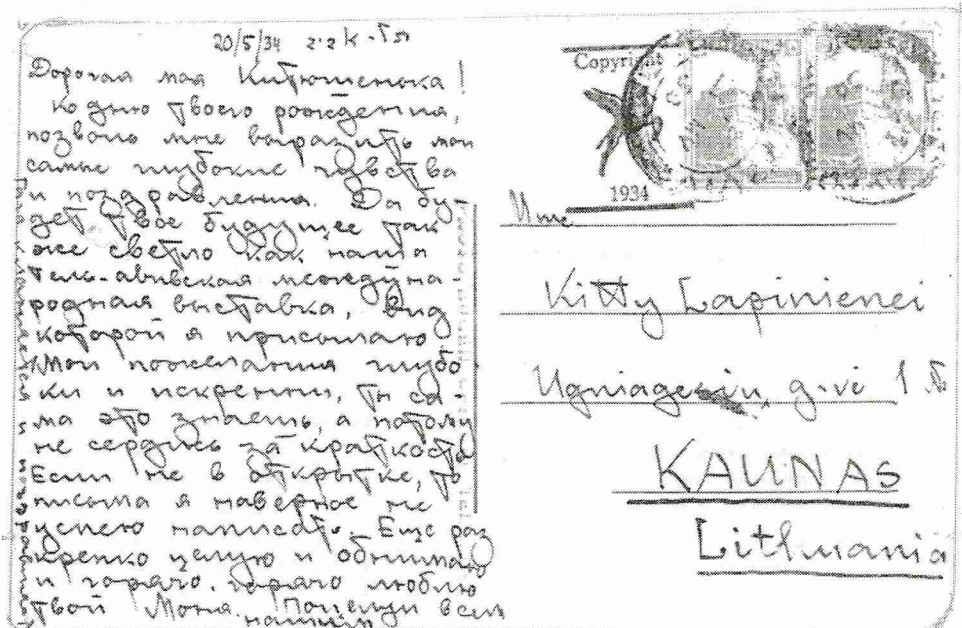 20/5/34
Дорогая моя Китюшенька!
Ко дню твоего рождения,
позволь мне выразить мои
самые глубокие чувства
и поздравления. Да бу-
дет твое будущее так
же светло как наша
Тель-авивская междуна-
родная выставка, вид
которой я присылаю
Мои пожелания глубо
ки и искренни, ты са-
ма это знаешь, а потому
не сердись за краткость
Если не в открытке, то
письма я наверное не
успею написать. Еще раз
крепко целую и обнимаю
и горячо, горячо люблю
твой Моня. Поцелуи всем
нашим
Copyright
1934
Mme
Kitty Lapinienei
g-vė 1
KAUNAS
Lithuania